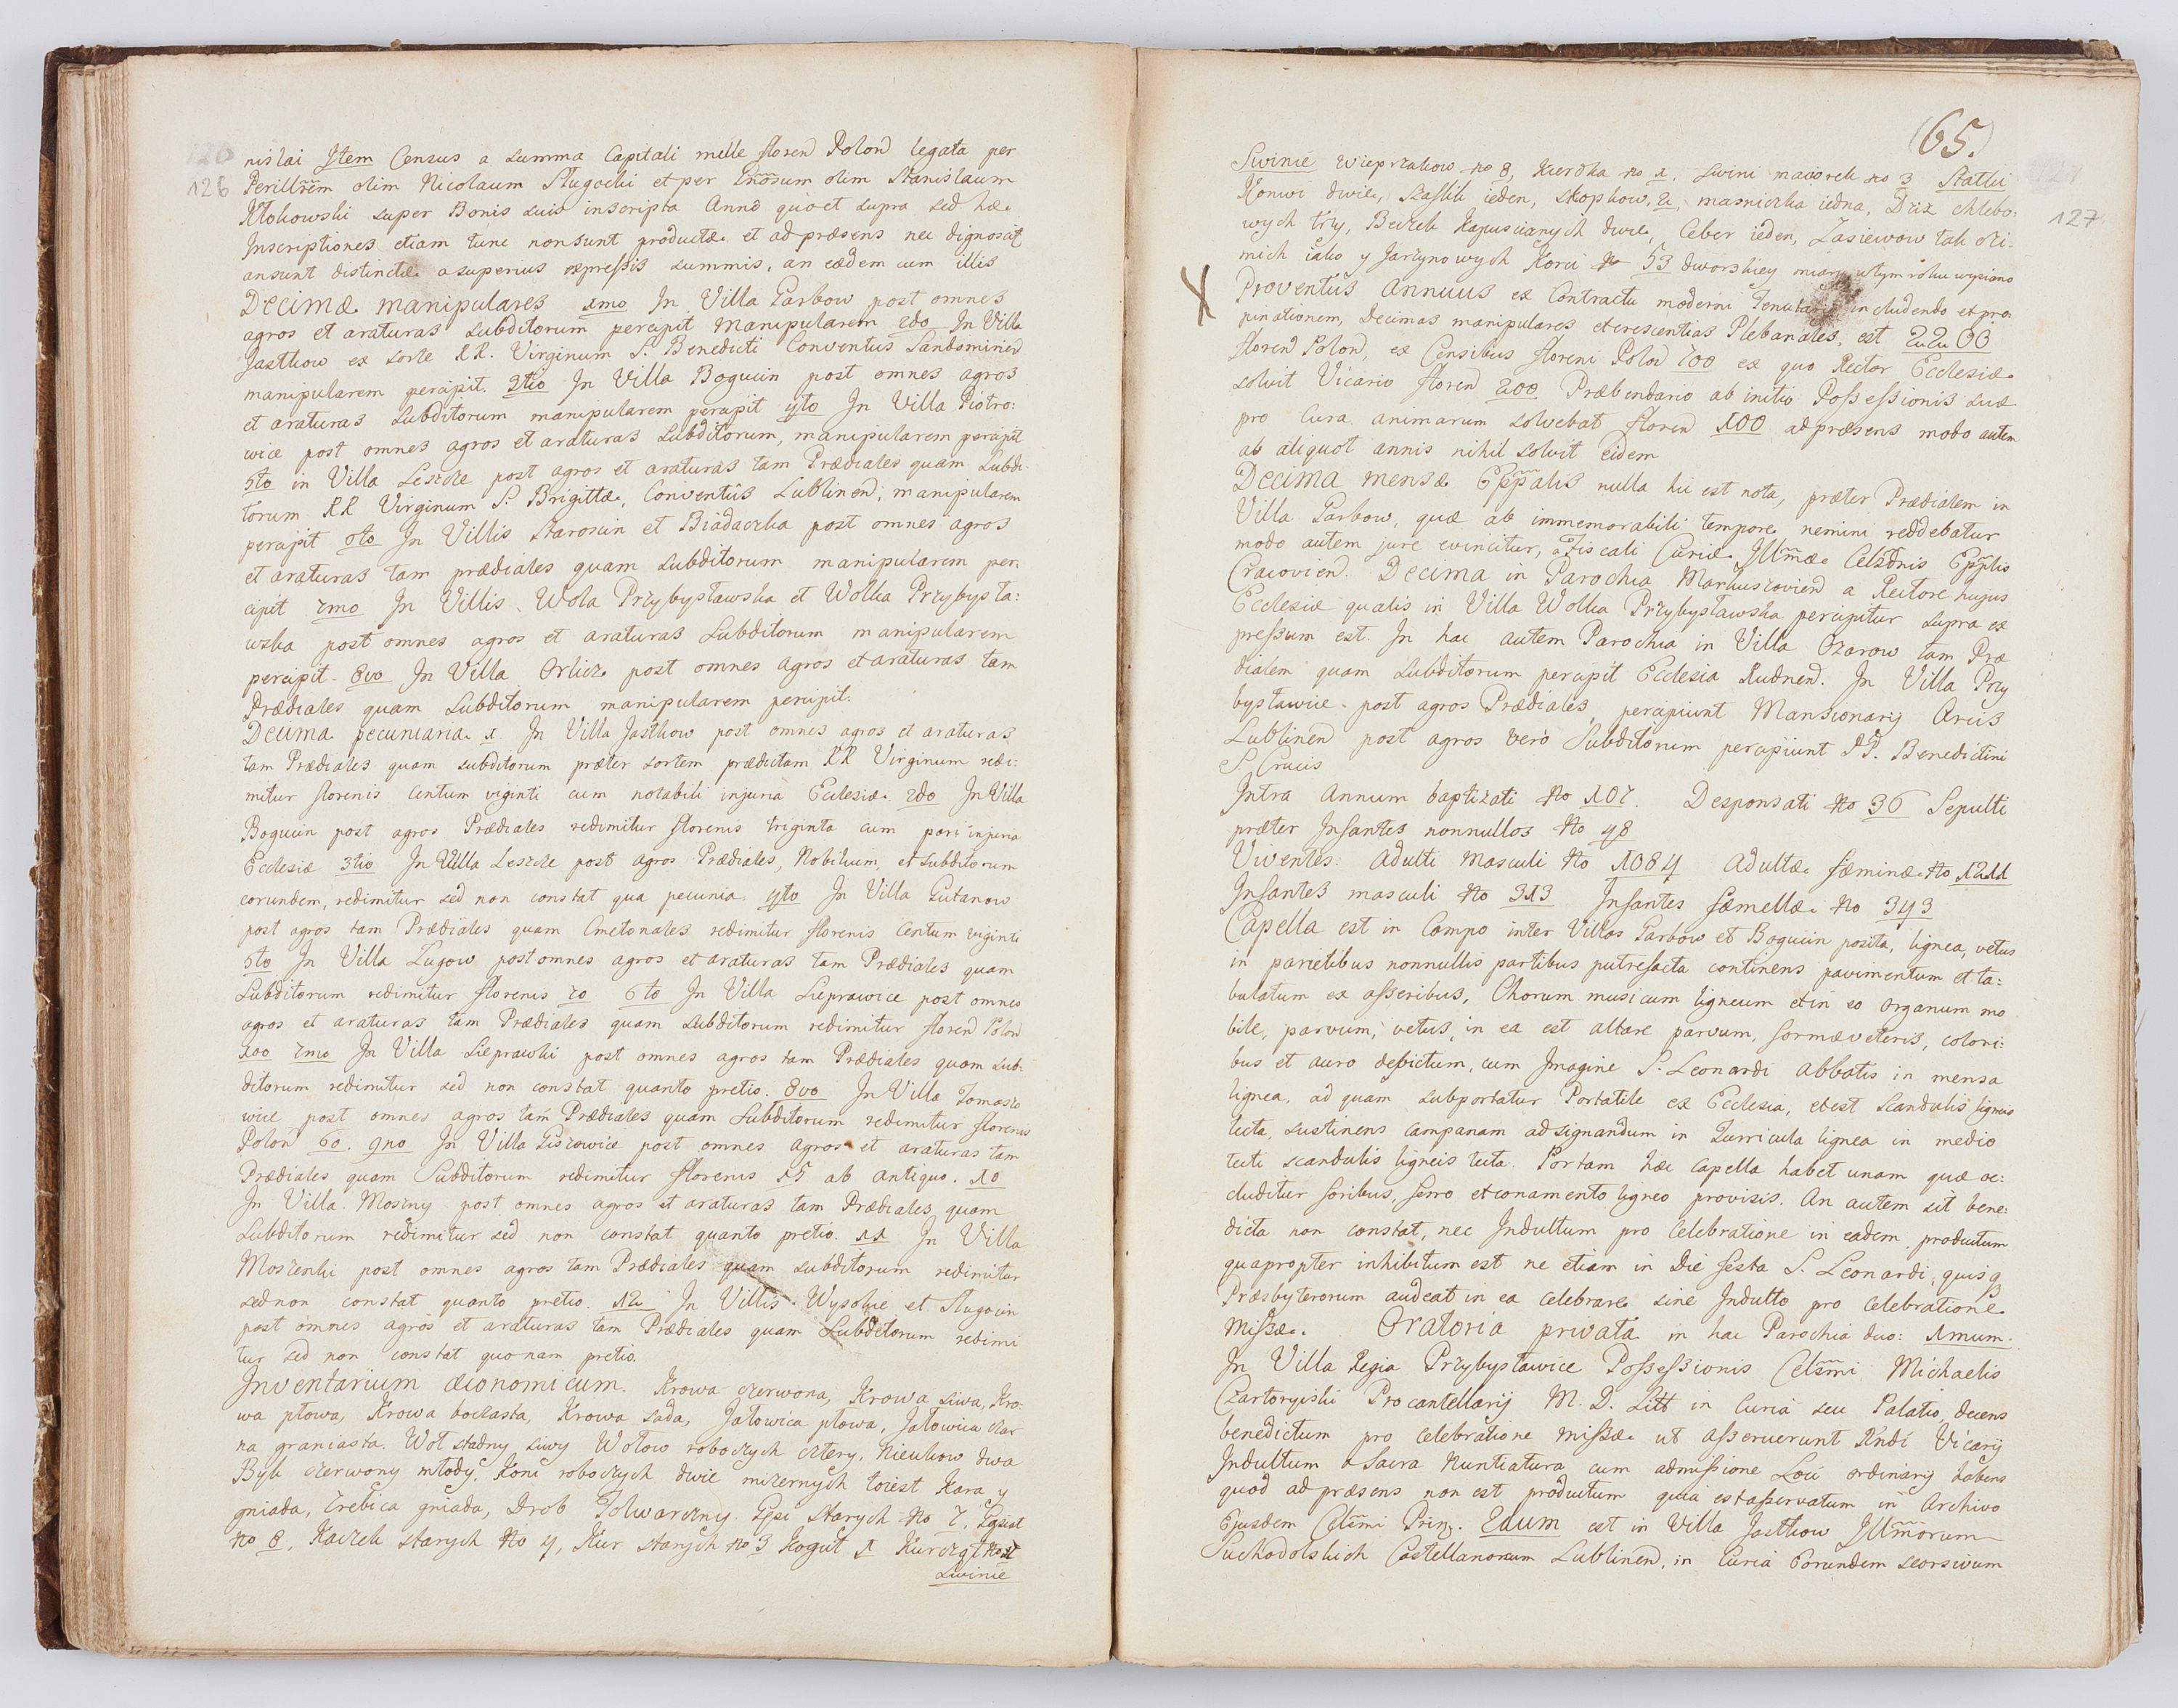 126
nislai Item Census a summa Capitali mille floren̄ Polon̄ legata per
Perillr̄em olim Nicolaum Sługocki et per Gn̄osum olim Stanislaum
Kłokowski super Bonis suis inscripta Annô quo et supra sed hæ
Inscriptiones etiam tunc non sunt productæ et ad præsens nec dignoscit̄
an sunt distinctæ a superius expressis summis, an eædem cum illis
Decimæ manipulares 1mo In Villa Garbow post omnes
agros et araturas subditorum percipit Manipularem 2do In Villa
Jastkow ex sorte RR. Virginum S. Benedicti Conventus Sandomirien̄
manipularem percipit. 3tio In Villa Bogucin post omnes agros
et araturas subditorum manipularem percipit 4to In Villa Piotro:
wice post omnes agros et araturas subditorum, manipularem percipit
5to in Villa Lescze post agros et araturas tam Prædiales quam subdi-
torum RR Virginum S. Brigittæ, Conventûs Lublinen̄, manipularem
percipit 6to In Villis Staroscin et Biadaczka post omnes agros
et araturas tam prædiales quam subditorum manipularem per:
cipit 7mo In Villis, Wola Przybysławska et Wolka Przybysła:
wska post omnes agros et araturas subditorum manipularem
percipit. 8vo In Villa Orlicz post omnes agros et araturas tam
Prædiales quam Subditorum manipularem percipit.
Decima pecuniaria 1 In Villa Jastkow post omnes agros et araturas
tam Prædiales quam subditorum præter sortem prædictam RR Virginum redi:
mitur florenis Centum viginti cum notabili injuria Ecclesiæ. 2do In Villa
Bogucin post agros Prædiales redimitur florenis triginta cum pari injuria
Ecclesiæ 3tio In Villa Lescze post agros Prædiales, Nobilium, et subditorum
eorundem, redimitur sed non constat qua pecunia 4to In Villa Gutanow
post agros tam Prædiales quam Cmetonales redimitur florenis Centum viginti
5to In Villa Ługow post omnes agros et araturas tam Prædiales quam
Subditorum redimitur florenis 70 6to In Villa Sieprawice post omnes
agros et araturas tam Prædiales quam subditorum redimitur floren̄ Polon̄
100 7mo In Villa Sieprawki post omnes agros tam Prædiales quam sub:
ditorum redimitur sed non constat quanto pretio. 8vo In Villa Tomaszo
wice post omnes agros tam Prædiales quam Subditorum redimitur florenis
Polon̄ 60. 9no In Villa Piszowice post omnes agros et araturas tam
Prædiales quam Subditorum redimitur florenis 15 ab antiquo. 10
In Villa Moszny post omnes agros et araturas tam Prædiales quam
Subditorum redimitur sed non constat quanto pretio. 11 In Villa
Moszenki post omnes agros tam Prædiales quam subditorum redimitur
sed non constat quanto pretio. 12 In Villis Wysokie et Sługocin
post omnes agros et araturas tam Prædiales quam Subditorum redimi
tur sed non constat quo nam pretio.
Inventarium œconomicum. Krowa czerwona, Krowa siwa, Kro:
wa płowa, Krowa boczasta, Krowa sada, Jałowica płowa, Jałowica czar
na graniasta. Woł stadny siwy Wołow roboczych cztery, Nieukow dwa
Byk czerwony młody, Koni roboczych dwie mizernych toiest Kara y
gniada, Zrebica gniada, Drob Folwarczny. Gęsi starych No 7, Gąsiąt
No 8, Kaczek starych No 4, Kur starych No 3 Kogut 1
swinie
(65.)
127
Swinie Wieprzakow no 8, Kiernka no 1, swini maciorek no 3 Statki
Konwi dwie, szaflik ieden, skopkow 2, masniczka iedna, Dziż chlebo:
wych trzy, Beczek Kapuscianych dwie, Ceber ieden, Zasiewow tak ozi-
mich iako y Jarzynowych Korci No 53 dworskiey miary w tym roku wysiano
Proventus Annuus ex Contractu moderni Tenutarii includendo et pro:
pinationem, Decimas manipulares et crescentias Plebanales, est 2200
floren̄ Polon̄, ex Censibus floreni Polon̄ 700 ex quo Rector Ecclesiæ
solvit Vicario floren̄ 200 Præbendario ab initio Possessionis suæ
pro Cura animarum solvebat floren̄ 100 ad præsens modo autem
ab aliquot annis nihil solvit eidem
Decima mensæ Ep̄p̄alis nulla hic est nota, præter Prædialem in
Villa Garbow, quæ ab immemorabili tempore nemini reddebatur
modo autem jure evincitur, a Fiscali Curiæ Illm̄æ Cels̄nis Ep̄p̄lis
Cracovien̄. Decima in Parochia Markuszovien̄ a Rectore hujus
Ecclesiæ qualis in Villa Wolka Przybysławska percipitur supra ex
pressum est. In hac autem Parochia in Villa Ożarow tam Præ
dialem quam Subditorum percipit Ecclesia Rudnen̄. In Villa Przy
bysławice post agros Prædiales percipiunt Mansionarij Arcis
Lublinen̄ post agros verò Subditorum percipiunt PP. Benedictini
S. Crucis
Intra Annum baptizati No 107. Desponsati No 36 Sepulti
præter Infantes nonnullos No 48
Viventes: Adulti Masculi No 1084 Adultæ fæminæ No 1211
Infantes masculi No 313 Infantes fæmellæ No 343
Capella est in Campo inter Villas Garbow et Bogucin posita, lignea, vetus
in parietibus nonnullis partibus putrefacta continens pavimentum et ta:
bulatum ex asseribus, Chorum musicum ligneum et in eo organum mo
bile, parvum, vetus, in ea est altare parvum, formæ veteris, colori:
bus et auro depictum, cum Imagine S. Leonardi Abbatis in mensa
lignea, ad quam subportatur Portatile ex Ecclesia, et est scandulis ligneis
tecta, sustinens campanam ad signandum in Turricula lignea in medio
tecti scandulis ligneis tecta. Portam hæc Capella habet unam quæ oc:
cluditur foribus, ferro et conamento ligneo provisis. An autem sit bene:
dicta non constat, nec Indultum pro Celebratione in eadem productum
quapropter inhibitum est ne etiam in Die festa S. Leonardi, quisq̨
Præsbyterorum audeat in ea celebrare sine Indulto pro celebratione
Missæ. Oratoria privata in hac Parochia duo: 1mum
In Villa Regia Przybysławice Possessionis Cels̄mi Michaelis
Czartoryiski Procancellarij M. D. Litt in Curia seu Palatio, decens
benedictum pro celebratione missæ ut asseruerunt Rndi Vicarij
Indultum a Sacra Nuntiatura cum admissione Loci ordinarij habens
quod ad præsens non est productum quia est asservatum in Archivo
Ejusdem Cels̄mi Prin̄. 2dum est in Villa Jastkow Illm̄orum
Suchodolskich Castellanorum Lublinen̄, in Curia Eorundem seorsivum